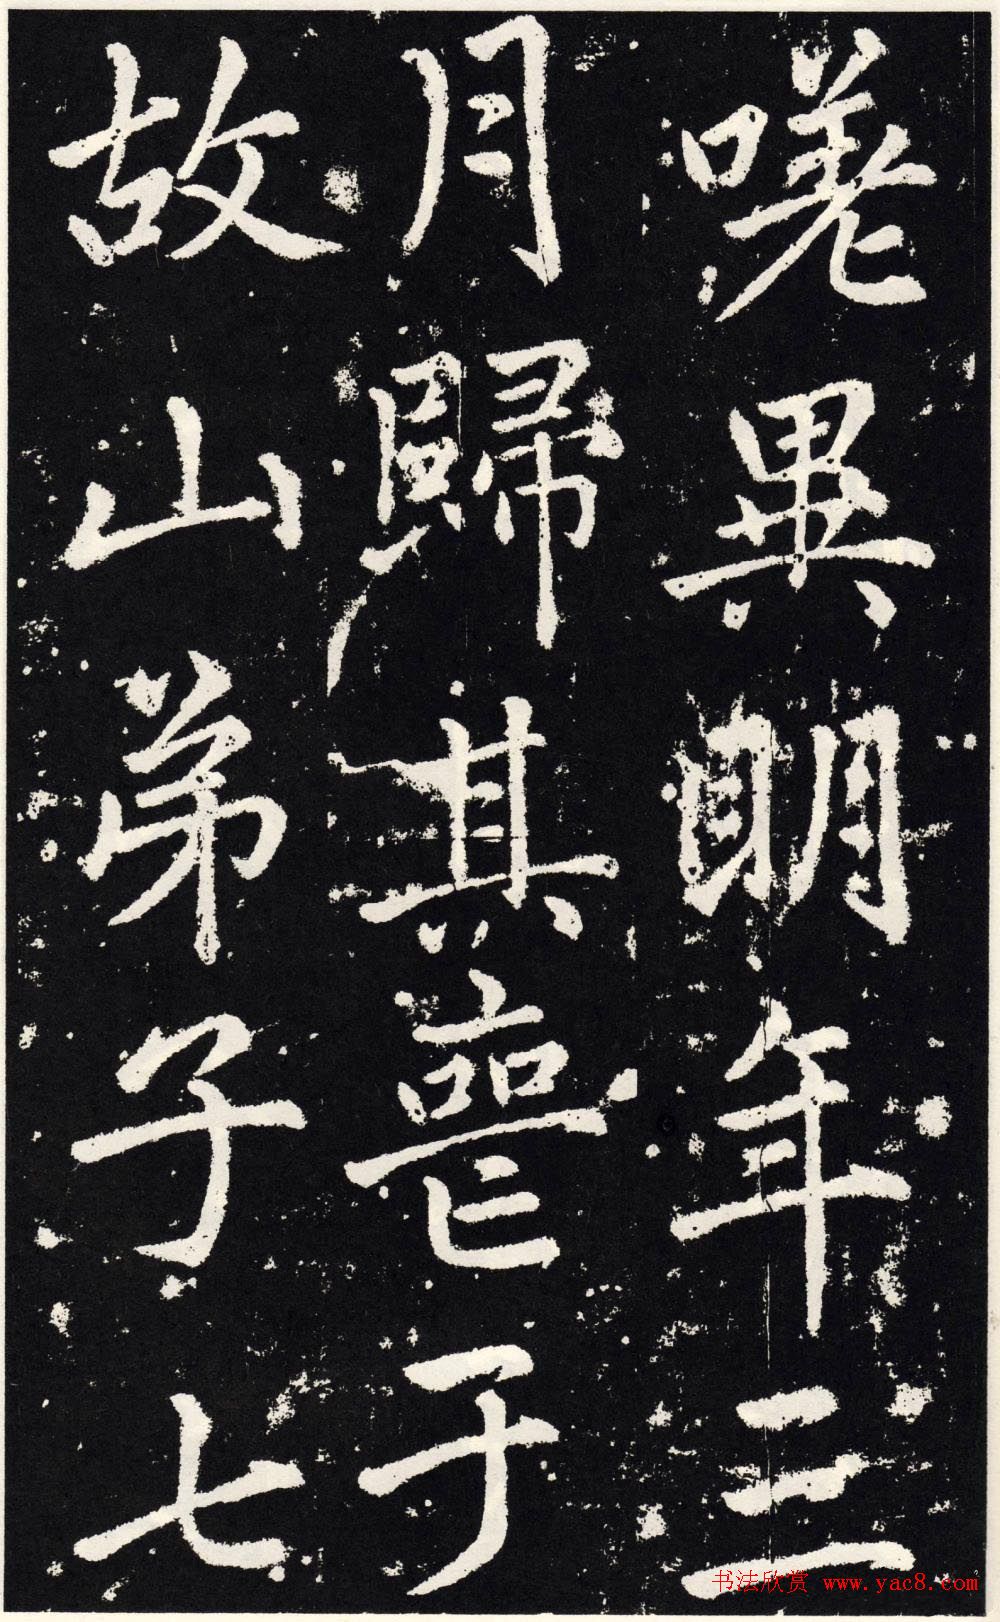 嗟異明年三
月歸其喪于
故山弟子七
书法欣赏 www.yac8.com